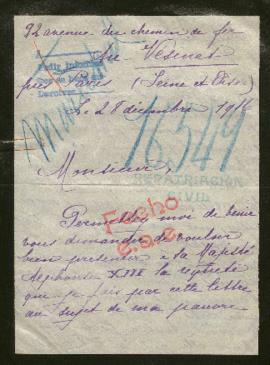 92 avenue du chemin de fer
Au Vésinet
près Paris (Seine et Oise)
Le 28 décembre 1916
16.549
Monsieur
REPATRIACIÓN
CIVIL
Fecho
Permettez moi de venir
vous demander de vouloir
bien présenter à sa Majesté
Alphonse XIII la requête
que je fais par cette lettre
au sujet de mon pauvre